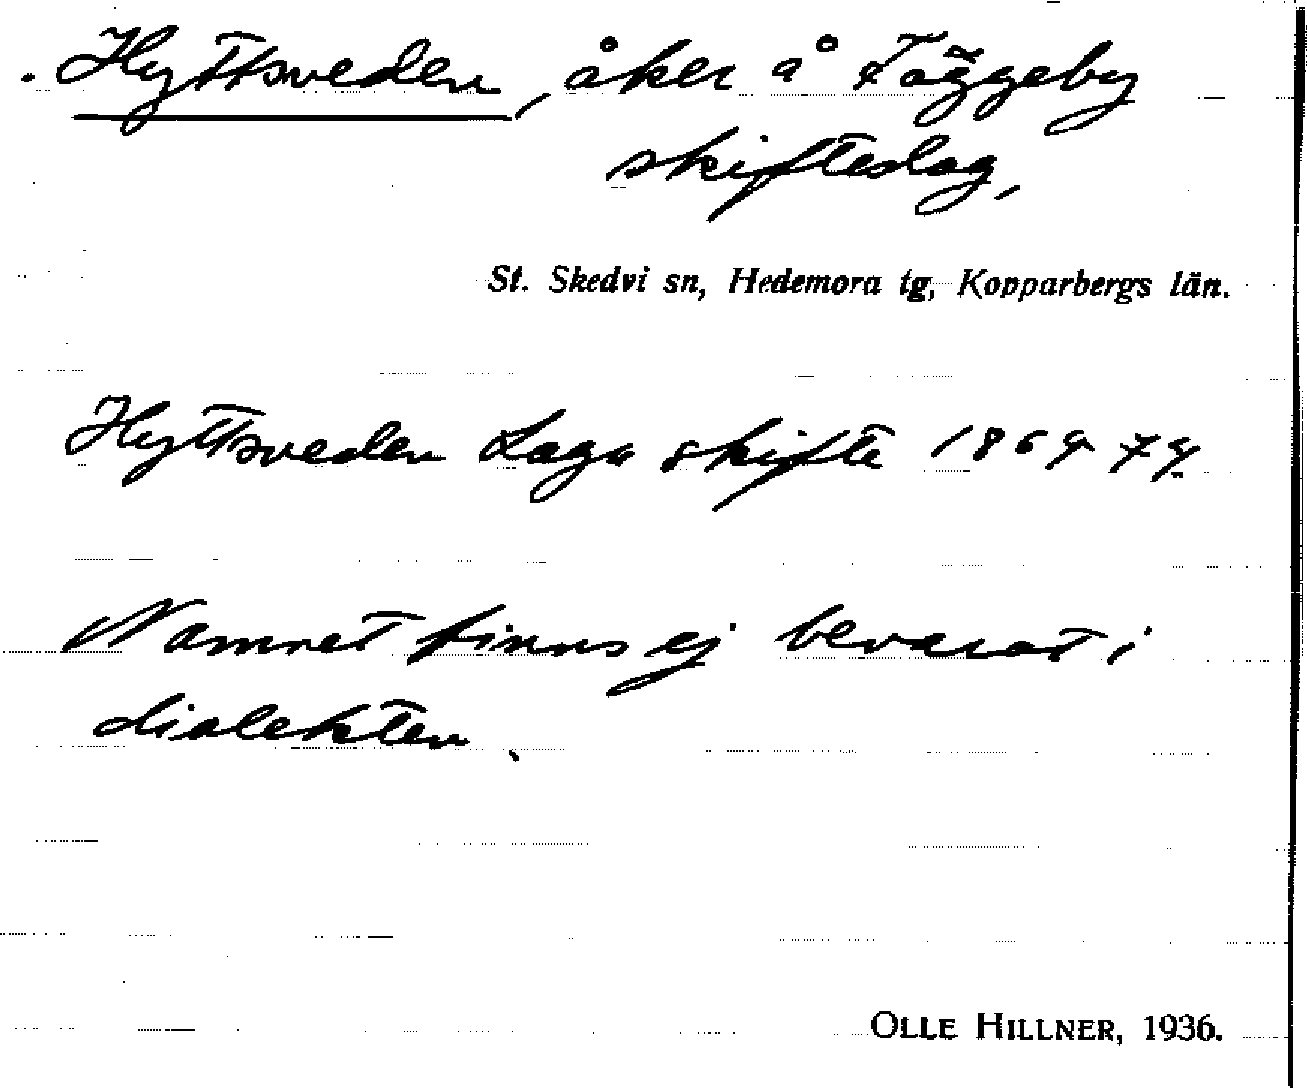 Hyttsveden, åker å Fäggeby
skifteslag,
St. Skedvi sn, Hedemora tg, Kopparbergs län.
Hyttsveden Laga skifte 1869-79
Namnet finns ej bevarat i
dialekten.
OLLE HILLNER, 1936.